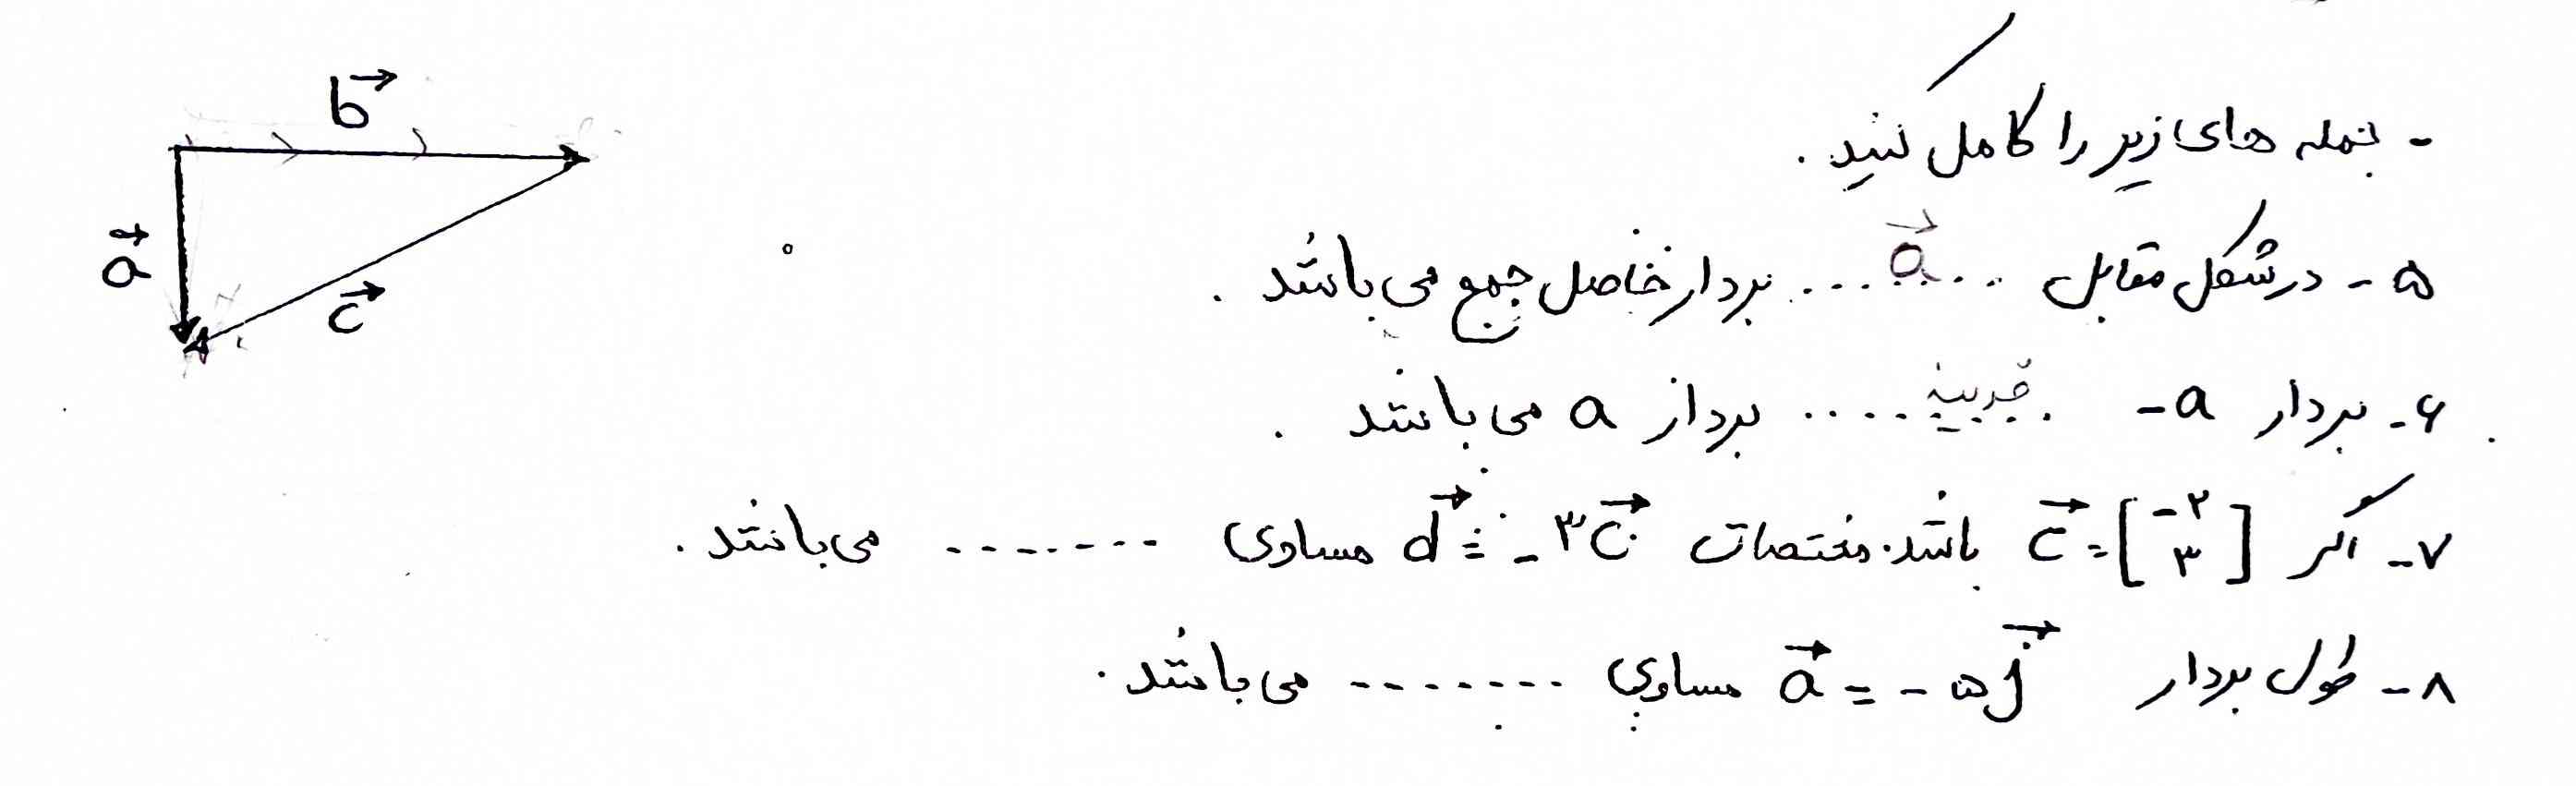 - جمله های زیر را کامل کنید.
۵- در شکل مقابل ..a⃗.... بردار حاصل جمع می باشد.
۶- بردار -a .قرینه.... بردار a می باشد.
۷- اگر c⃗=[-۲ ۳] باشد. مختصات d⃗=-۳c⃗ مساوی ........ می باشد.
۸- طول بردار a⃗=-۵j⃗ مساوی ........ می باشد.
b⃗
a⃗
c⃗